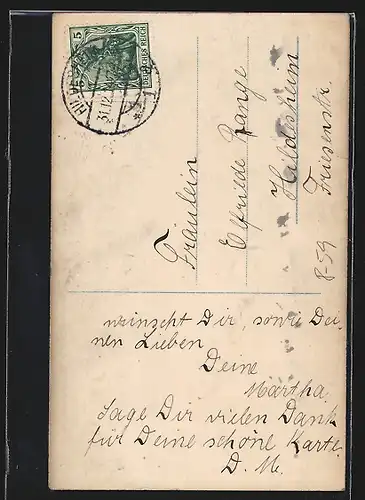 5
DEUTSCHES REICH
31.12.
Fräulein
Elfriede Range
Hildesheim
Friesenstr.
8-59
wünscht Dir, sowie Dei-
nen Lieben
Deine
Martha.
Sage Dir vielen Dank
für Deine schöne Karte.
D. M.